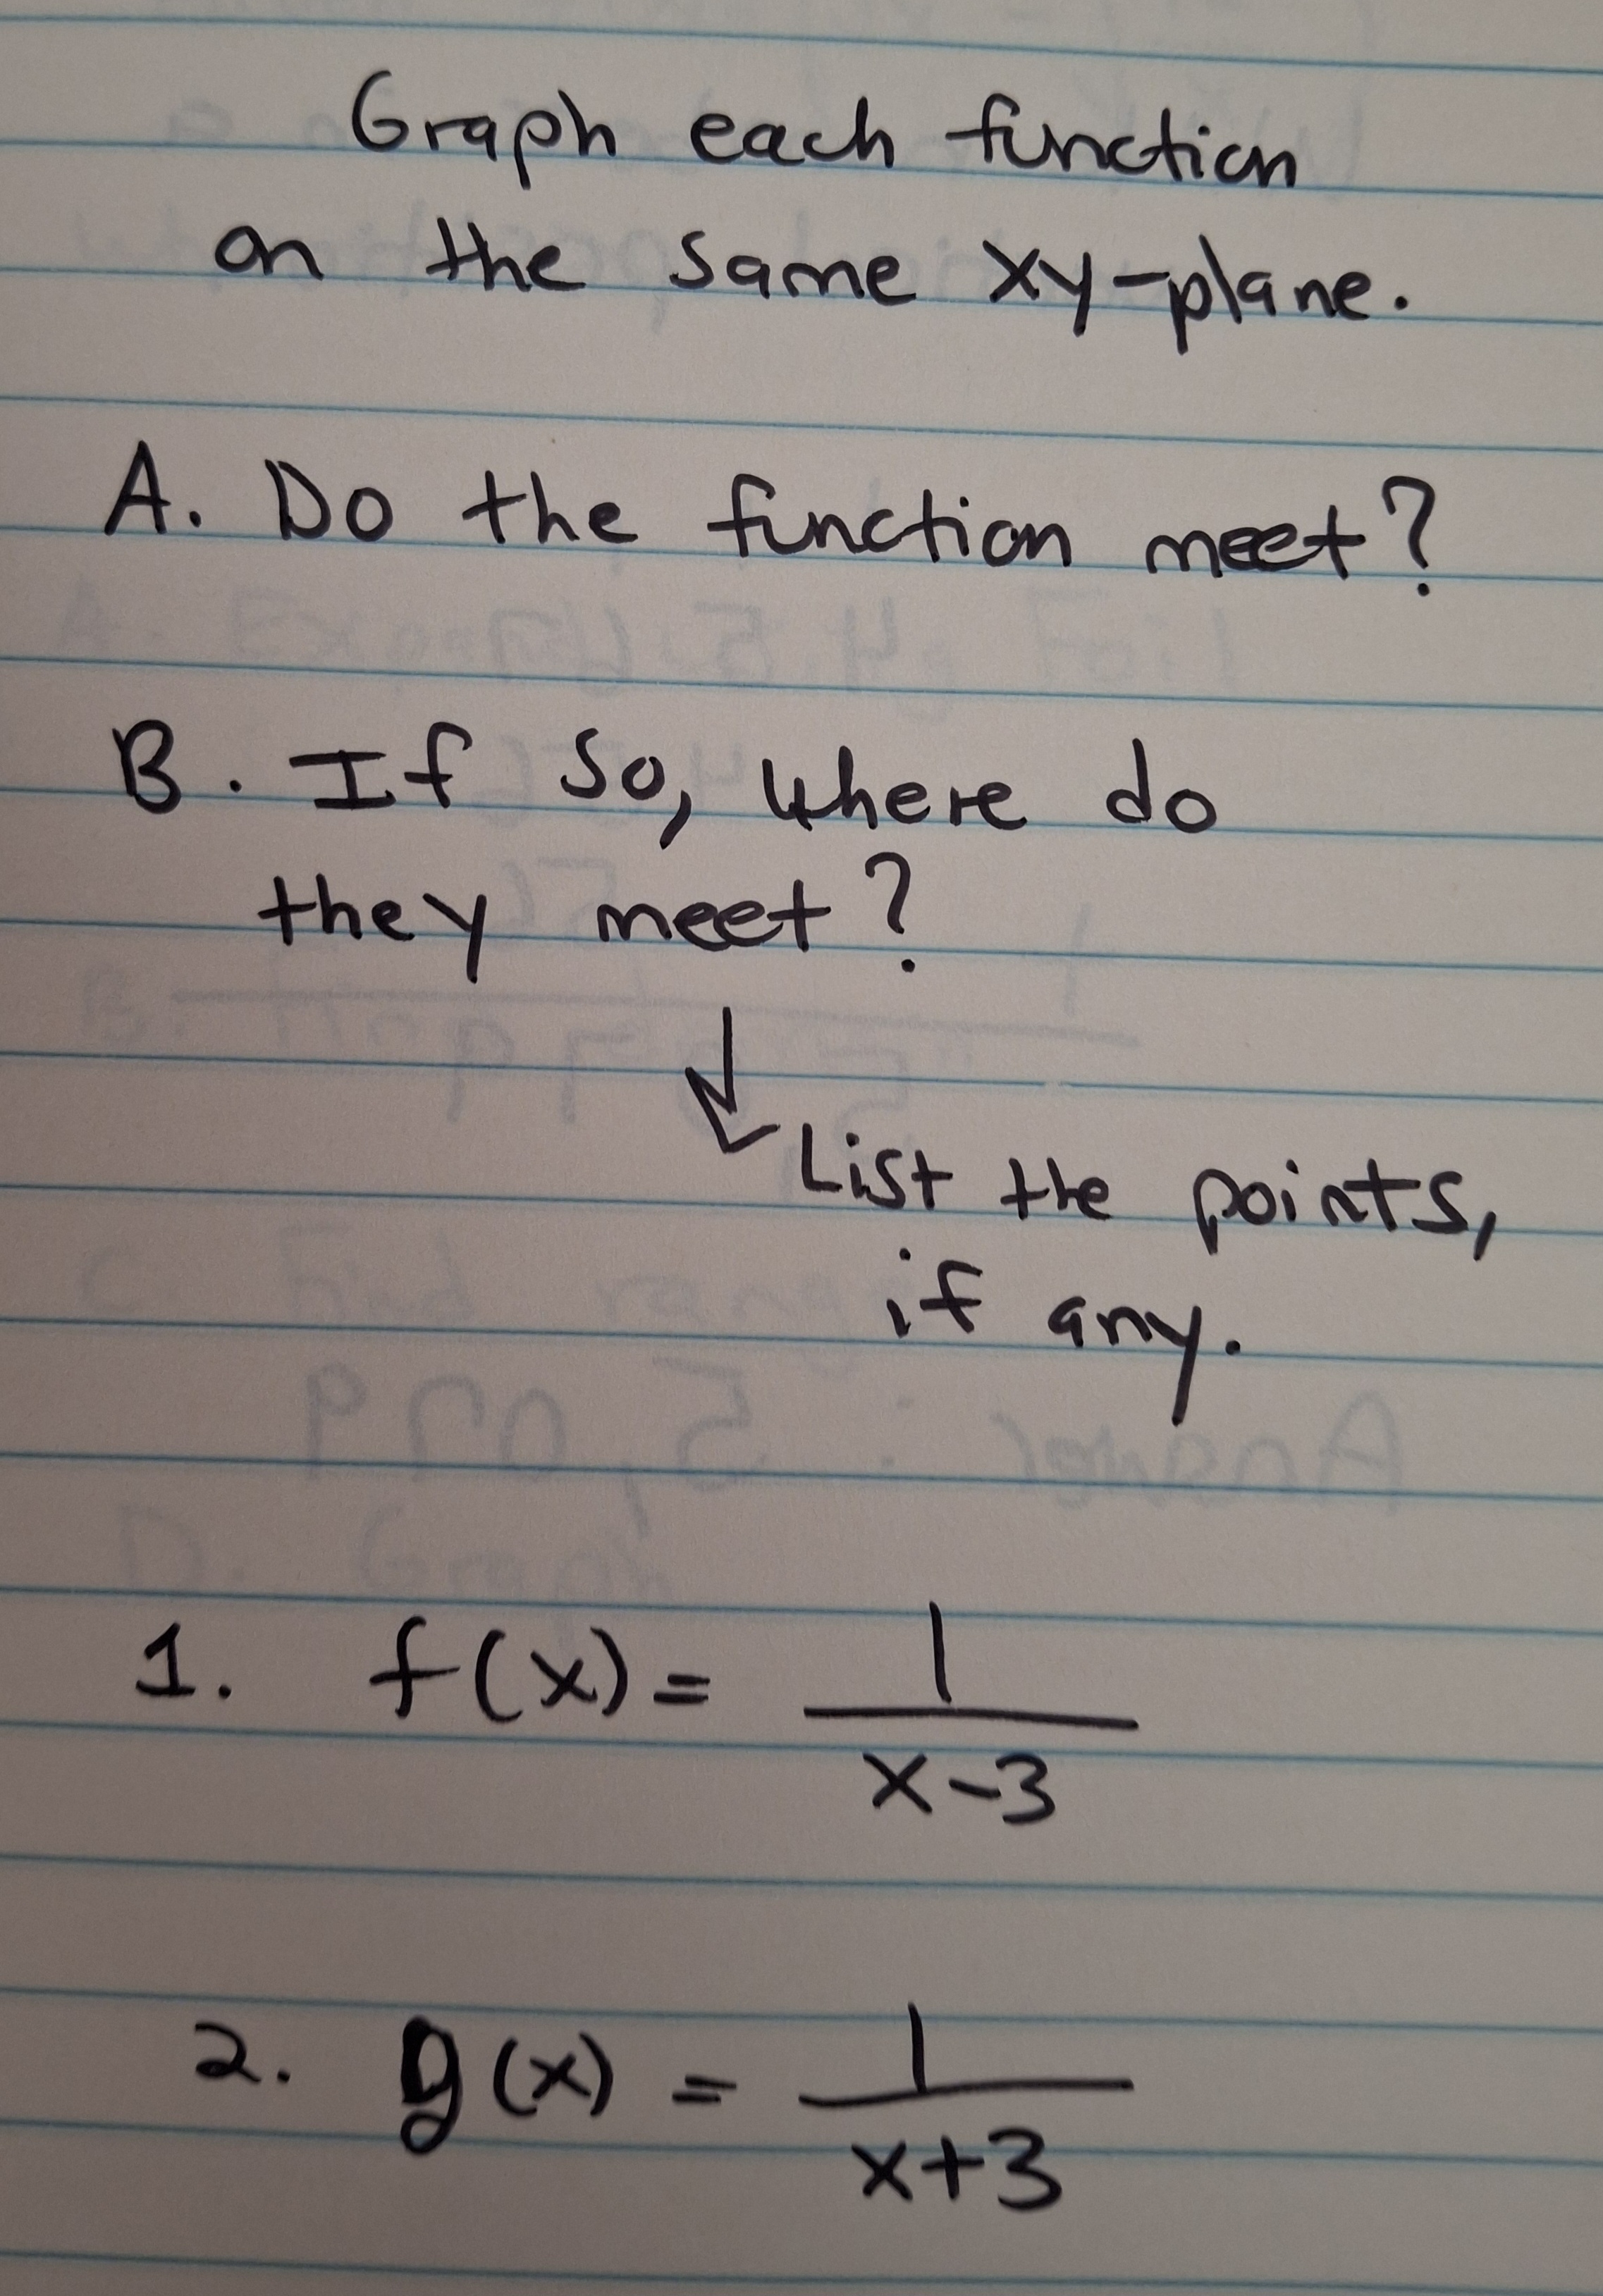 Graph each function
on the same xy-plane.
A. Do the function meet?
B. If so, where do
they meet?
↓ List the points,
if any.
1. f(x) = 1/(x-3)
2. g(x) = 1/(x+3)